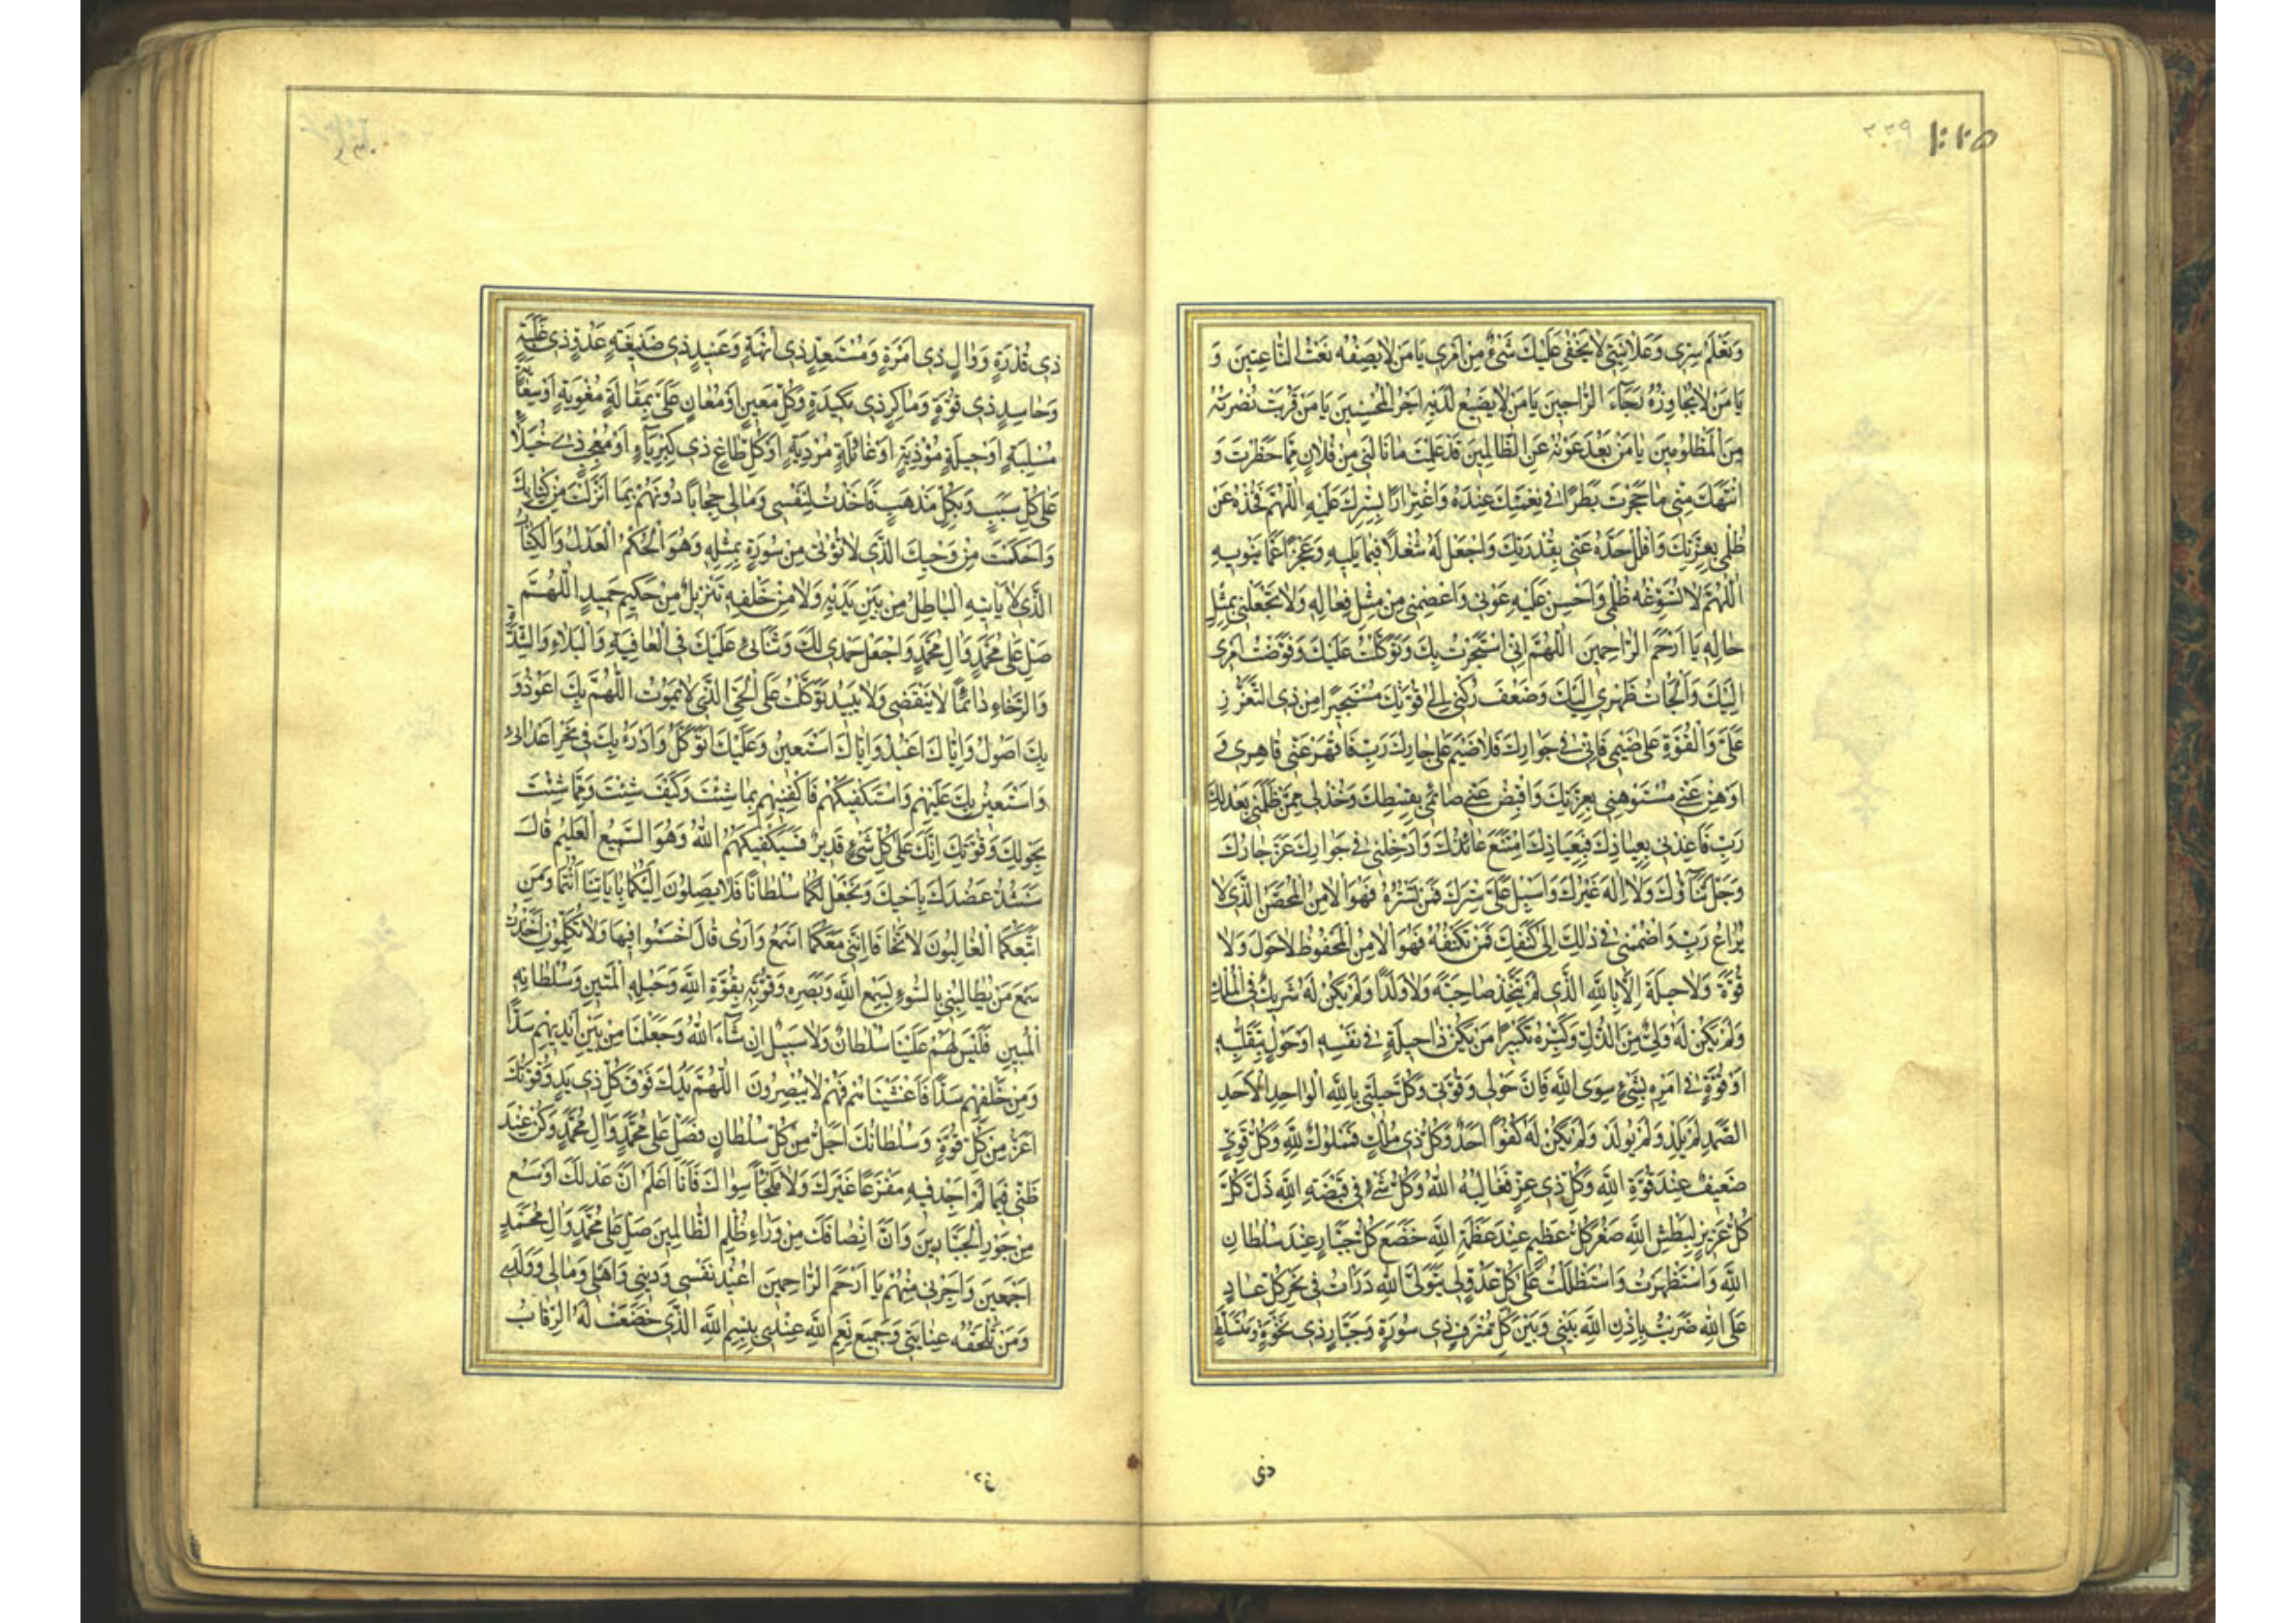 ٢٢٩
وَتَعْلَمُ سِرّى وَعَلانِيَتى لا يَخْفى عَلَيْكَ شَىْءٌ مِنْ اَمْرى يا مَنْ لا يَصِفُهُ نَعْتُ النّاعِتينَ وَ
يا مَنْ لا يُجاوِزُهُ رَجآءُ الرّاجينَ يا مَنْ لا يَضيعُ لَدَيْهِ اَجْرُ الْمُحْسِنينَ يا مَنْ قَرُبَتْ نُصْرَتُهُ
مِنَ الْمَظْلُومينَ يا مَنْ بَعُدَ عَوْنُهُ عَنِ الظّالِمينَ قَدْ عَلِمْتَ ما نالَنى مِنْ فُلانٍ مِمّا حَظَرْتَ وَ
انْتَهَكَ مِنّى ما حَجَرْتَ بَطَرًا فى نِعْمَتِكَ عِنْدَهُ وَاغْتِرارًا بِسِتْرِكَ عَلَيْهِ اَللّهُمَّ فَخُذْهُ عَنْ
ظُلْمى بِعِزَّتِكَ وَافْلُلْ حَدَّهُ عَنّى بِقُدْرَتِكَ وَاجْعَلْ لَهُ شُغْلاً فيما يَليهِ وَعَجْزًا عَمّا يَنْويهِ
اَللّهُمَّ لا تُسَوِّغْهُ ظُلْمى وَاَحْسِنْ عَلَيْهِ عَوْنى وَاعْصِمْنى مِنْ مِثْلِ فِعالِهِ وَلا تَجْعَلْنى بِمِثْلِ
حالِهِ يا اَرْحَمَ الرّاحِمينَ اَللّهُمَّ اِنّى اسْتَجَرْتُ بِكَ وَتَوَكَّلْتُ عَلَيْكَ وَفَوَّضْتُ اَمْرى
اِلَيْكَ وَاَلْجَأْتُ ظَهْرى اِلَيْكَ وَضَعْفَ رُكْنى اِلى قُوَّتِكَ مُسْتَجيرًا مِنْ ذِى التَّعَزُّزِ
عَلَىَّ وَالْقُوَّةِ عَلى ضَيْمى فَاِنّى فى جِوارِكَ فَلا ضَيْمَ عَلى جارِكَ رَبِّ فَاقْهَرْ عَنّى قاهِرى وَ
اَوْهِنْ عَنّى مُسْتَوْهِنى بِعِزَّتِكَ وَاقْبِضْ عَنّى ضائِمى بِقِسْطِكَ وَخُذْ لى مِمَّنْ ظَلَمَنى بِعَدْلِكَ
رَبِّ فَاَعِذْنى بِعِياذِكَ فَبِعِياذِكَ امْتَنَعَ عائِذُكَ وَاَدْخِلْنى فى جِوارِكَ عَزَّ جارُكَ
وَجَلَّ ثَنآؤُكَ وَلا اِلهَ غَيْرُكَ وَاَسْبِلْ عَلَىَّ سِتْرَكَ فَمَنْ تَسْتُرُهُ فَهُوَ الْامِنُ الْمُحَصَّنُ الَّذى لا
يُراعُ رَبِّ وَاضْمُمْنى فى ذلِكَ اِلى كَنَفِكَ فَمَنْ تَكْنُفُهُ فَهُوَ الْامِنُ الْمَحْفُوظُ لا حَوْلَ وَلا
قُوَّةَ وَلا حيلَةَ اِلّا بِاللهِ الَّذى لَمْ يَتَّخِذْ صاحِبَةً وَلا وَلَدًا وَلَمْ يَكُنْ لَهُ شَريكٌ فِى الْمُلْكِ
وَلَمْ يَكُنْ لَهُ وَلِىٌّ مِنَ الذُّلِّ وَكَبِّرْهُ تَكْبيرًا مَنْ يَكُنْ ذا حيلَةٍ فى نَفْسِهِ اَوْ حَوْلٍ بِتَقَلُّبِهِ
اَوْ قُوَّةٍ فى اَمْرِهِ بِشَىْءٍ سِوَى اللهِ فَاِنَّ حَوْلى وَقُوَّتى وَكُلَّ حيلَتى بِاللهِ الْواحِدِ الْاَحَدِ
الصَّمَدِ لَمْ يَلِدْ وَلَمْ يُولَدْ وَلَمْ يَكُنْ لَهُ كُفُوًا اَحَدٌ وَكُلُّ ذى مُلْكٍ فَمَمْلُوكٌ لِلّهِ وَكُلُّ قَوِىٍّ
ضَعيفٌ عِنْدَ قُوَّةِ اللهِ وَكُلُّ ذى عِزٍّ فَغالِبُهُ اللهُ وَكُلُّ شَىْءٍ فى قَبْضَةِ اللهِ ذَلَّ كُلُّ
كُلُّ عَزيزٍ لِبَطْشِ اللهِ صَغُرَ كُلُّ عَظيمٍ عِنْدَ عَظَمَةِ اللهِ خَضَعَ كُلُّ جَبّارٍ عِنْدَ سُلْطانِ
اللهِ وَاسْتَظْهَرْتُ وَاسْتَظَلْتُ عَلى كُلِّ عَدُوٍّ لى بِتَوَلِّى اللهِ دَرَأْتُ فى نَحْرِ كُلِّ عادٍ
عَلَى اللهِ ضَرَبْتُ بِاِذْنِ اللهِ بَيْنى وَبَيْنَ كُلِّ مُتْرَفٍ ذى سَوْرَةٍ وَجَبّارٍ ذى نَخْوَةٍ وَمُتَسَلِّطٍ
ذى
ذى قُدْرَةٍ وَوالٍ ذى اِمْرَةٍ وَمُسْتَعِدٍّ ذى اُبَّهَةٍ وَعَنيدٍ ذى ضَغينَةٍ عَدُوٍّ ذى غَلَبَةٍ
وَحاسِدٍ ذى قُوَّةٍ وَماكِرٍ ذى مَكيدَةٍ وَكُلِّ مُعينٍ اَوْ مُعانٍ عَلَىَّ بِمَقالَةٍ مُغْوِيَةٍ اَوْ سِعايَةٍ
مُسْلِبَةٍ اَوْ حيلَةٍ مُؤْذِيَةٍ اَوْ غائِلَةٍ مُرْدِيَةٍ اَوْ كُلِّ طاغٍ ذى كِبْرِيآءٍ اَوْ مُعْجِبٍ ذى خُيَلاءٍ
عَلى كُلِّ سَبَبٍ وَبِكُلِّ مَذْهَبٍ فَاَخَذْتُ لِنَفْسى وَمالى حِجابًا دُونَهُمْ بِما اَنْزَلْتَ مِنْ كِتابِكَ
وَاَحْكَمْتَ مِنْ وَحْيِكَ الَّذى لا يُؤْتى مِنْ سُورَةٍ بِمِثْلِهِ وَهُوَ الْحَكَمُ الْعَدْلُ وَالْكِتابُ
الَّذى لا يَأْتيهِ الْباطِلُ مِنْ بَيْنِ يَدَيْهِ وَلا مِنْ خَلْفِهِ تَنْزيلٌ مِنْ حَكيمٍ حَميدٍ اَللّهُمَّ
صَلِّ عَلى مُحَمَّدٍ وَالِ مُحَمَّدٍ وَاجْعَلْ حَمْدى لَكَ وَثَنائى عَلَيْكَ فِى الْعافِيَةِ وَالْبَلاءِ وَالشِّدَّةِ
وَالرَّخاءِ دائِمًا لا يَنْقَضى وَلا يَبيدُ تَوَكَّلْتُ عَلَى الْحَىِّ الَّذى لا يَمُوتُ اَللّهُمَّ بِكَ اَعُوذُ وَ
بِكَ اَصُولُ وَاِيّاكَ اَعْبُدُ وَاِيّاكَ اَسْتَعينُ وَعَلَيْكَ اَتَوَكَّلُ وَاَدْرَءُ بِكَ فى نَحْرِ اَعْدائى
وَاَسْتَعينُ بِكَ عَلَيْهِمْ وَاَسْتَكْفيكَهُمْ فَاكْفِنيهِمْ بِما شِئْتَ وَكَيْفَ شِئْتَ وَمِمّا شِئْتَ
بِحَوْلِكَ وَقُوَّتِكَ اِنَّكَ عَلى كُلِّ شَىْءٍ قَديرٌ فَسَيَكْفيكَهُمُ اللهُ وَهُوَ السَّميعُ الْعَليمُ قالَ
سَنَشُدُّ عَضُدَكَ بِاَخيكَ وَنَجْعَلُ لَكُما سُلْطانًا فَلا يَصِلُونَ اِلَيْكُما بِاياتِنا اَنْتُما وَمَنِ
اتَّبَعَكُمَا الْغالِبُونَ لا تَخافا اِنَّنى مَعَكُما اَسْمَعُ وَاَرى قالَ اخْسَئُوا فيها وَلا تُكَلِّمُونِ اَخَذْتُ
سَمْعَ مَنْ يُطالِبُنى بِالسُّوءِ بِسَمْعِ اللهِ وَبَصَرِهِ وَقُوَّتِهِ بِقُوَّةِ اللهِ وَحَبْلِهِ الْمَتينِ وَسُلْطانِهِ
الْمُبينِ فَلَيْسَ لَهُمْ عَلَيْنا سُلْطانٌ وَلا سَبيلٌ اِنْ شآءَ اللهُ وَجَعَلْنا مِنْ بَيْنِ اَيْديهِمْ سَدًّا
وَمِنْ خَلْفِهِمْ سَدًّا فَاَغْشَيْناهُمْ فَهُمْ لا يُبْصِرُونَ اَللّهُمَّ يَدُكَ فَوْقَ كُلِّ ذى يَدٍ وَقُوَّتُكَ
اَعَزُّ مِنْ كُلِّ قُوَّةٍ وَسُلْطانُكَ اَجَلُّ مِنْ كُلِّ سُلْطانٍ فَصَلِّ عَلى مُحَمَّدٍ وَالِ مُحَمَّدٍ وَكُنْ عِنْدَ
ظَنّى فيما لَمْ اَجِدْ فيهِ مَفْزَعًا غَيْرَكَ وَلا مَلْجَأً سِواكَ فَاَنَا اَعْلَمُ اَنَّ عَدْلَكَ اَوْسَعُ
مِنْ جَوْرِ الْجَبّارينَ وَاَنَّ اِنْصافَكَ مِنْ وَراءِ ظُلْمِ الظّالِمينَ صَلِّ عَلى مُحَمَّدٍ وَالِ مُحَمَّدٍ
اَجْمَعينَ وَاَجِرْنى مِنْهُمْ يا اَرْحَمَ الرّاحِمينَ اُعيذُ نَفْسى وَدينى وَاَهْلى وَمالى وَوَلَدى
وَمَنْ تَلْحَقُهُ عِنايَتى وَجَميعَ نِعَمِ اللهِ عِنْدى بِبِسْمِ اللهِ الَّذى خَضَعَتْ لَهُ الرِّقابُ